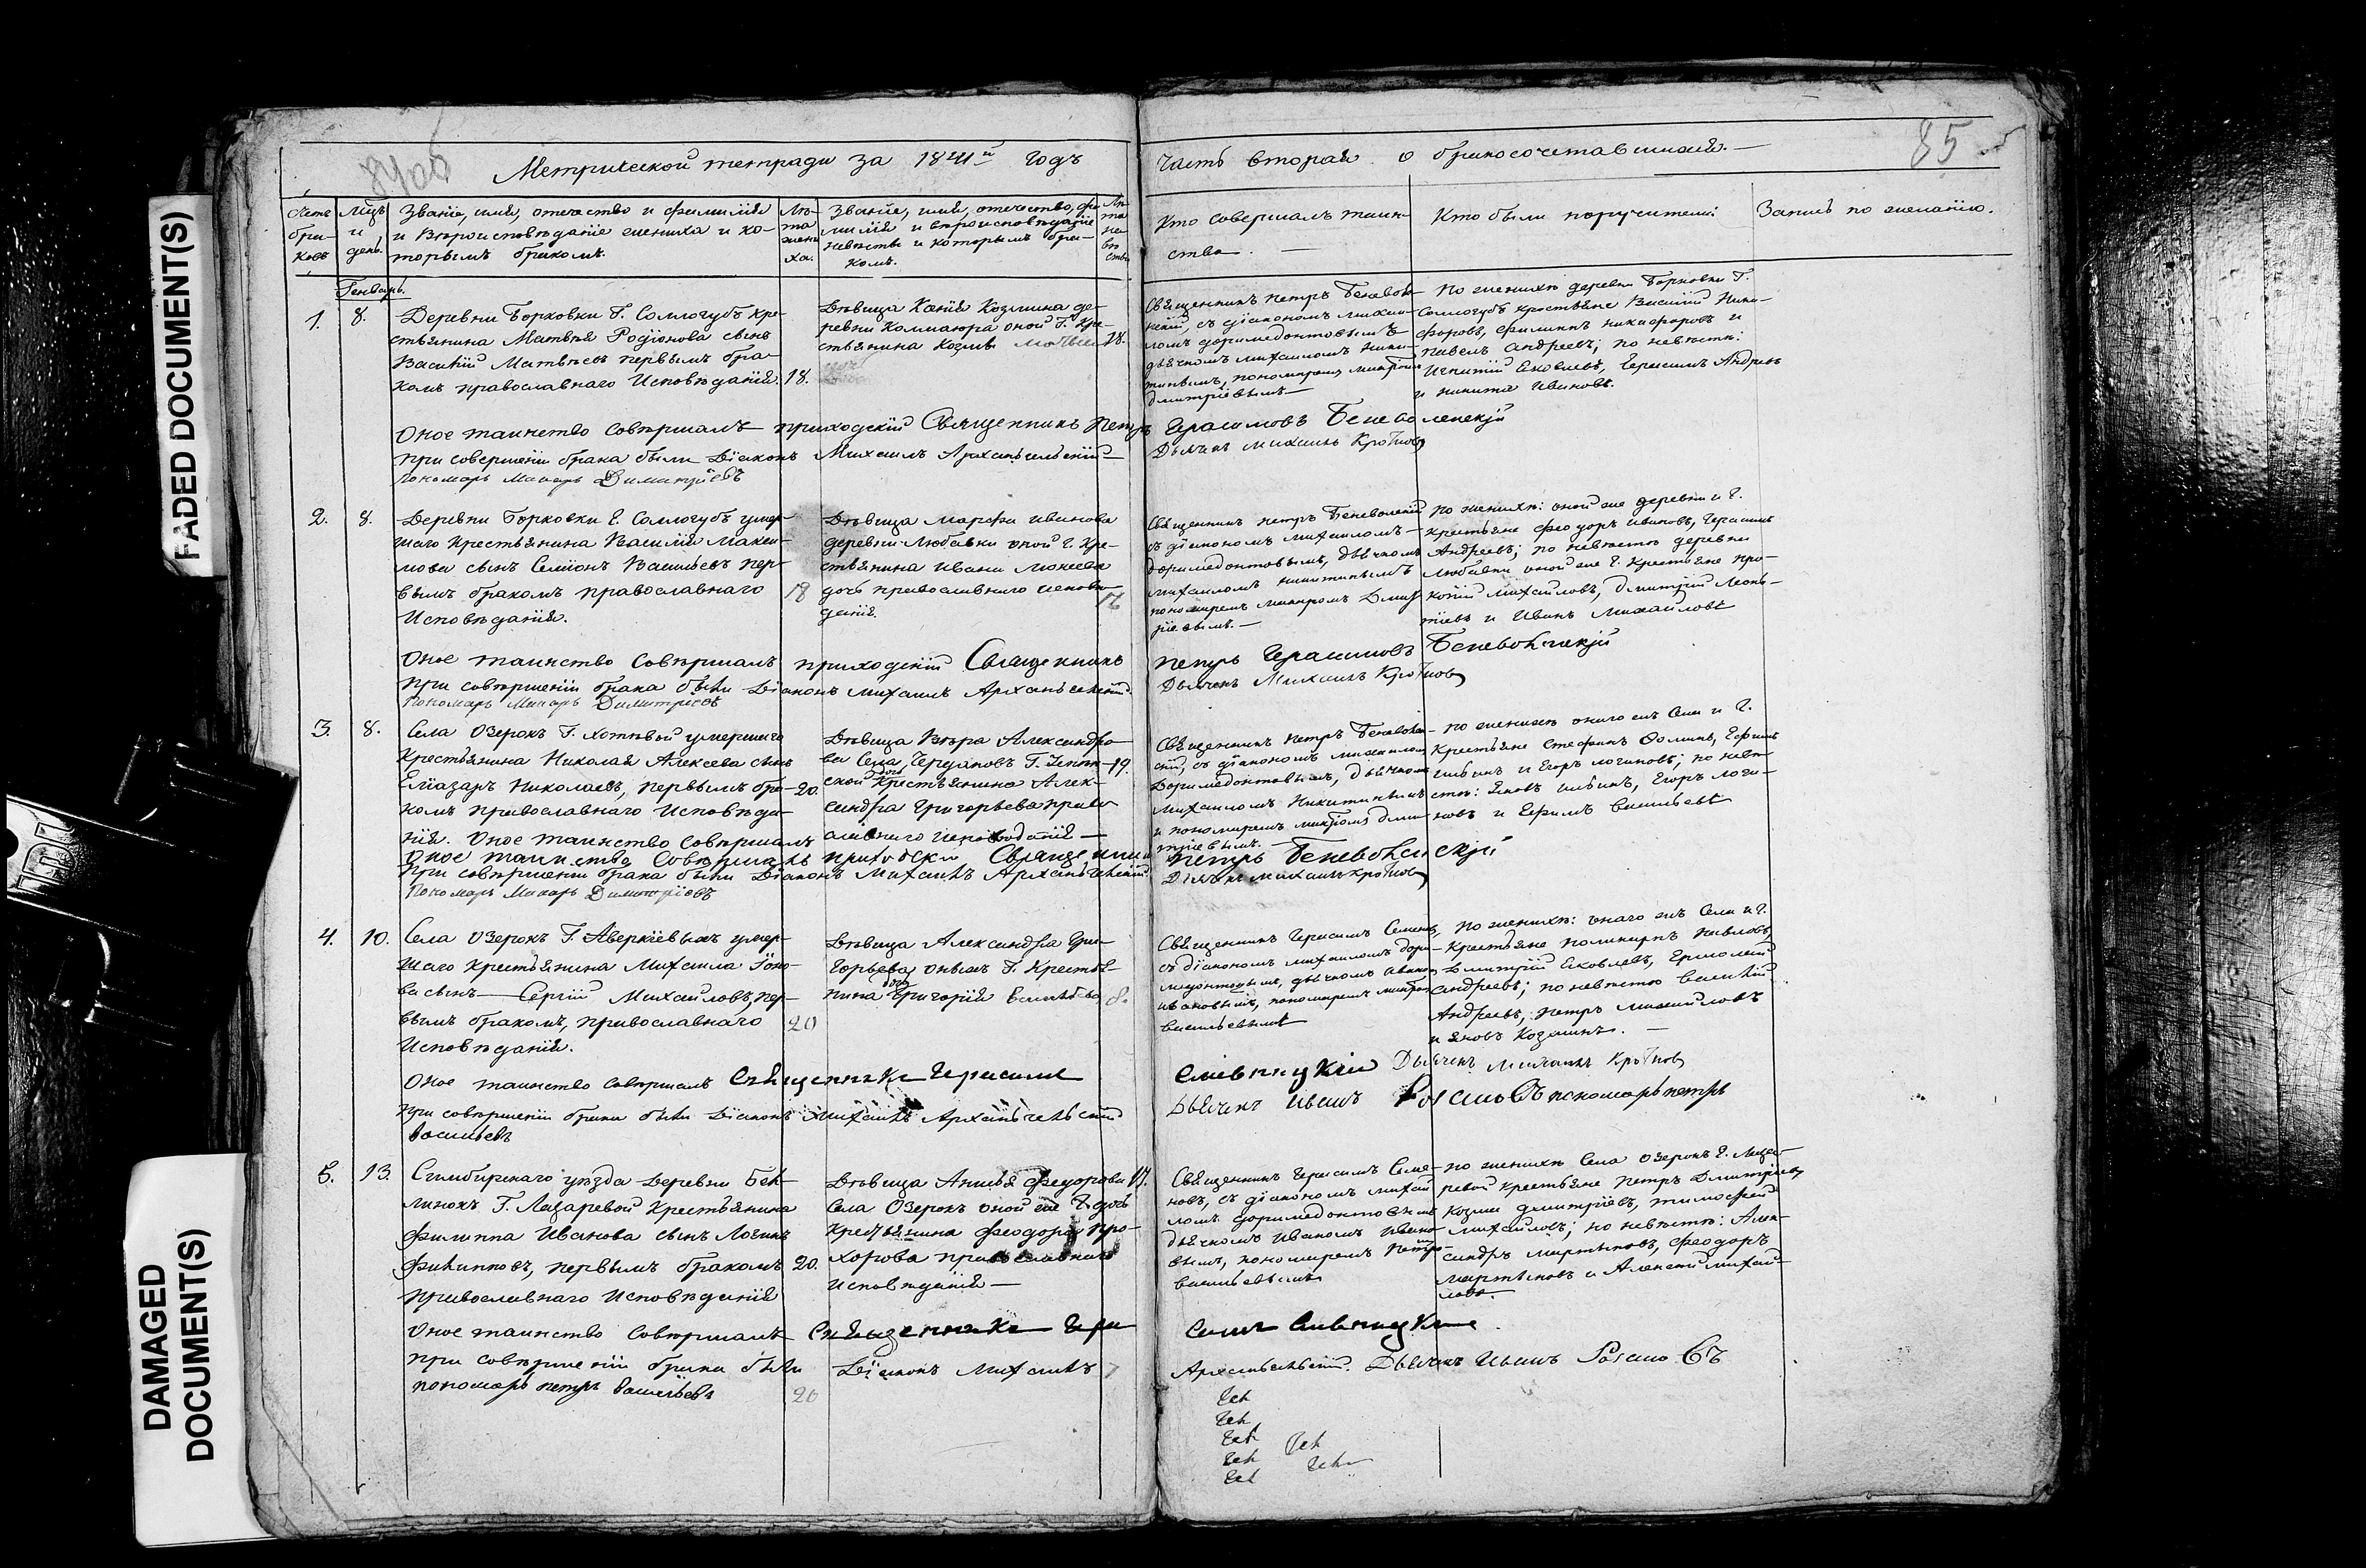 FADED DOCUMENT(S)
DAMAGED
DOCUMENT(S)
Метрической тетради за 1841й годъ
Часть вторая о бракосочетавшихся.
85
Счетъ браковъ
Мцъ и день.
Званіе, имя, отечество и фамилія
и Вѣроисповѣданіе жениха и ко-
торымъ бракомъ.
Лѣта жениха.
Званіе, имя, отечество, фа-
милія и вѣроисповѣданіе
невѣсты и которымъ бра-
комъ.
Лѣта невѣсты
Кто совершалъ таин-
ство.
Кто были поручители
Запись по желанію.
Генварь.
1. 8.
Деревни Борковки Г. Соллогубъ кре-
стьянина Матвѣя Родіонова сынъ
Василій Матвѣевъ первымъ бра-
комъ православнаго Исповѣданія.
18.
Дѣвица Ксенія Козмина де-
ревни оной Г. Кре-
стьянина Козмы
18.
Священникъ Петръ Беневолен-
скій, съ діакономъ Михаи-
ломъ Доримедонтовымъ
дьячкомъ Михаиломъ Ники-
тинымъ, пономаремъ Макаромъ
Дмитріевымъ
По женихѣ деревни Борковки Г.
Соллогубъ крестьяне Василій Ники-
форовъ, Филиппъ Никифоровъ и
Павелъ Андреевъ; по невѣстѣ:
Игнатій Яковлевъ, Герасимъ Андреевъ
и Никита Ивановъ.
Оное таинство совершалъ приходскій Священникъ Петръ Герасимовъ Беневоленскій
При совершеніи брака были Діаконъ Михаилъ Архангельскій Дьячекъ Михаилъ Кротковъ
Пономарь Макаръ Димитріевъ
2. 8.
Деревни Борковки Г. Соллогубъ умер-
шаго Крестьянина Василія Макси-
мова сынъ Семіонъ Васильевъ пер-
вымъ бракомъ православнаго
Исповѣданія.
18
Дѣвица Марфа Иванова
деревни Любавки оной Г. Кре-
стьянина Ивана Мокеева
дочь православнаго исповѣ-
данія.
16
Священникъ Петръ Беневоленскій
съ діакономъ Михаиломъ
Доримедонтовымъ, дьячкомъ
Михаиломъ Никитинымъ
пономаремъ Макаромъ Дмит-
ріевымъ.
По женихѣ: оной же деревни и Г.
Крестьяне Феодоръ Ивановъ, Герасимъ
Андреевъ; по невѣстѣ деревни
Любавки оной же Г. Крестьяне Про-
копій Михайловъ, Дмитрій Леонь-
тіевъ и Иванъ Михайловъ
Оное таинство совершалъ приходскій Священникъ Петръ Герасимовъ Беневоленскій
При совершеніи брака были Діаконъ Михаилъ Архангельскій. Дьячекъ Михаилъ Кротковъ
Пономарь Макаръ Димитріевъ
3. 8.
Села Озерокъ Г. Хотяевой умершаго
Крестьянина Николая Алексева сынъ
Еліазаръ Николаевъ, первымъ бра-
комъ Православнаго Исповѣда-
нія. Оное таинство совершалъ
20.
Дѣвица Вѣра Александро-
ва Села Г.
ской Крестьянина Алек-
сандра Григорьева право-
славнаго исповѣданія
19.
Священникъ Петръ Беневолен-
скій, съ діакономъ Михаиломъ
Доримедонтовымъ, дьячкомъ
Михаиломъ Никитинымъ
и пономаремъ Макаромъ Дми-
тріевымъ.
По женихѣ онаго жъ Села и Г.
Крестьяне Стефанъ Ѳоминъ, Ефимъ
Ильинъ и Егоръ Логиновъ; по невѣ-
стѣ: Яковъ Ильинъ, Егоръ Логи-
новъ и Ефимъ Васильевъ
Оное таинство совершалъ приходскій Священникъ Петръ Беневоленскій
При совершеніи брака были Діаконъ Михаилъ Архангельскій Дьячекъ Михаилъ Кротковъ
Пономарь Макаръ Димитріевъ
4. 10.
Села Озерокъ Г. Аверкіевыхъ умер-
шаго Крестьянина Михаила Іоно-
ва сынъ Сергій Михайловъ, пер-
вымъ бракомъ, православнаго
Исповѣданія.
20
Дѣвица Александра Гри-
горьева оныхъ Г. Крестья-
нина Григорія Васильева дочь
Священникъ Герасимъ Семеновъ,
съ діакономъ Михаиломъ Дори-
медонтовымъ, дьячкомъ Иваномъ
Ивановымъ, пономаремъ Петромъ
Васильевымъ
По женихѣ: онаго жъ Села и Г.
Крестьяне Поликарпъ Павловъ,
Дмитрій Яковлевъ, Ермолай
Андреевъ; по невѣстѣ Василій
Андреевъ, Петръ Михайловъ
и Яковъ Козминъ.
Оное таинство совершалъ Священникъ Герасимъ Сливницкій
При совершеніи брака были Діаконъ Михаилъ Архангельскій Дьячекъ Иванъ пономарь Петръ
Васильевъ
Дьячекъ Михаилъ Кротковъ
5. 13.
Симбирскаго уѣзда Деревни Бек-
линокъ Г. Лазаревой Крестьянина
Филиппа Иванова сынъ Логинъ
Филипповъ, первымъ бракомъ
Православнаго Исповѣданія
20.
Дѣвица Анисья Федорова
Села Озерокъ оной же Г. дочь
Крестьянина Феодора Про-
хорова православнаго
Исповѣданія
17.
Священникъ Герасимъ Семе-
новъ, съ діакономъ Михаи-
ломъ Доримедонтовымъ
дьячкомъ Иваномъ Ивано-
вымъ, пономаремъ Петромъ
Васильевымъ
По женихѣ Села Озерокъ Г. Лаза-
ревой Крестьяне Петръ Дмитріевъ,
Козма Дмитріевъ, Тимофей
Михайловъ; по невѣстѣ: Алек-
сандръ Мартыновъ, Феодоръ
Мартыновъ и Алексей Михай-
ловъ.
Оное таинство совершалъ Священникъ Гера симъ Сливницкій
При совершеніи брака были Діаконъ Михаилъ Архангельскій. Дьячекъ Иванъ
пономарь Петръ Васильевъ
20